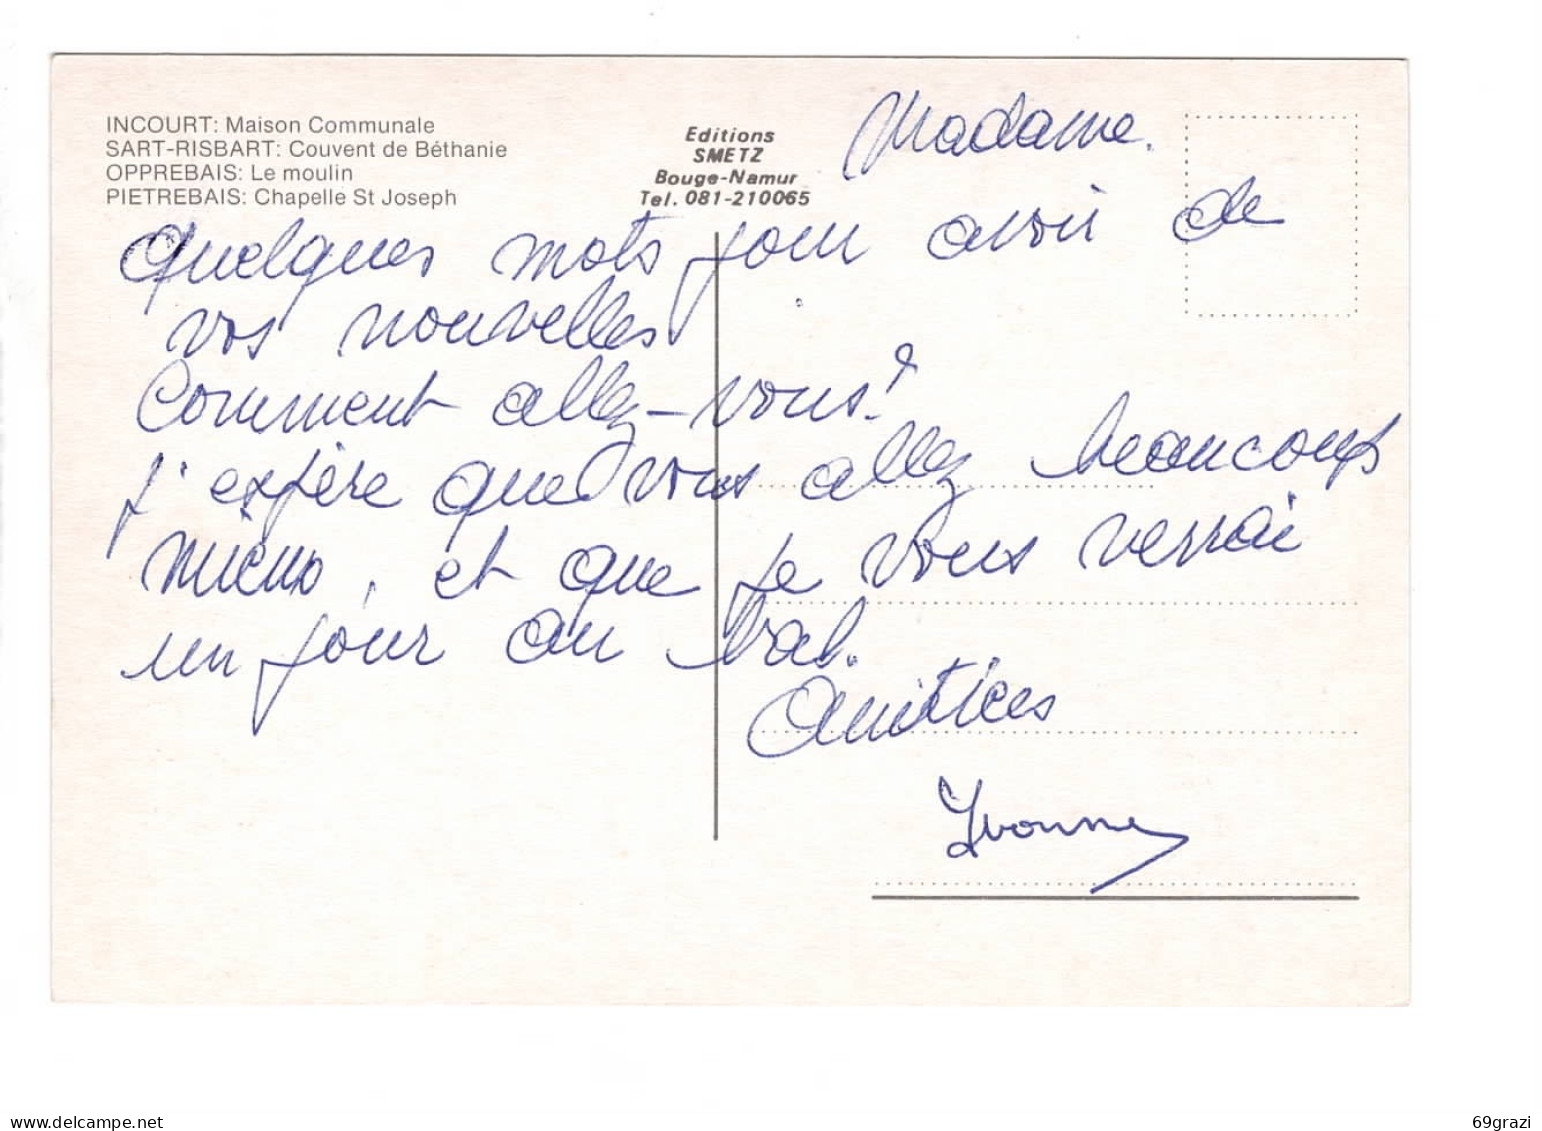 INCOURT: Maison Communale
SART-RISBART: Couvent de Béthanie
OPPREBAIS: Le moulin
PIETREBAIS: Chapelle St Joseph
Editions
SMETZ
Bouge-Namur
Tel. 081-210065
Madame.
Quelques mots pour avoir de
vos nouvelles.
Comment allez-vous?
J'espère que vous allez beaucoup
mieux, et que je vous verrai
un jour au bal.
Amitiées
Yvonne
delcampe.net
69grazi